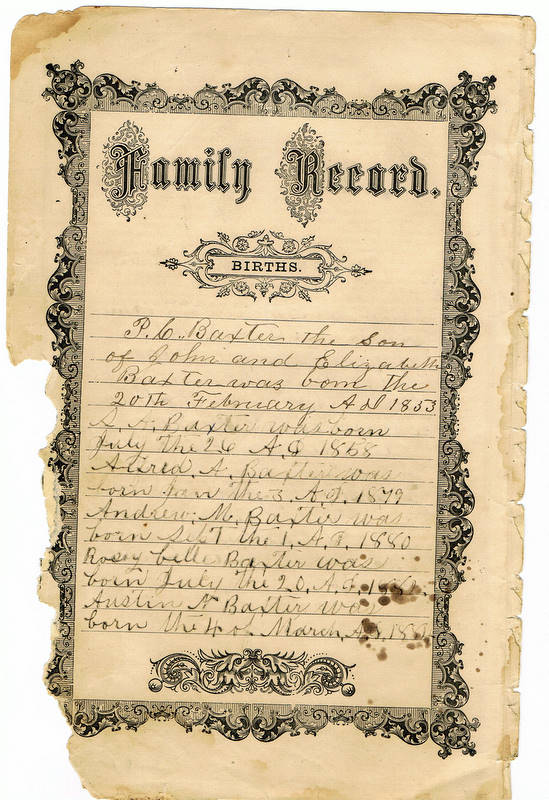 Family Record.
BIRTHS.
P. C. Baxter the son
of John and Elizabeth
Baxter was born the
20th February A D 1853
S. A. Baxter was born
July the 26 A D 1858
A. Baxter was
born Jan the 3 A. D. 1879
Andrew. M. Baxter was
born Sept the 1. A. D. 1880
Rosey belle Baxter was
born July the 20. A. D.
Austin N Baxter was
born the 4 of March, A. D.